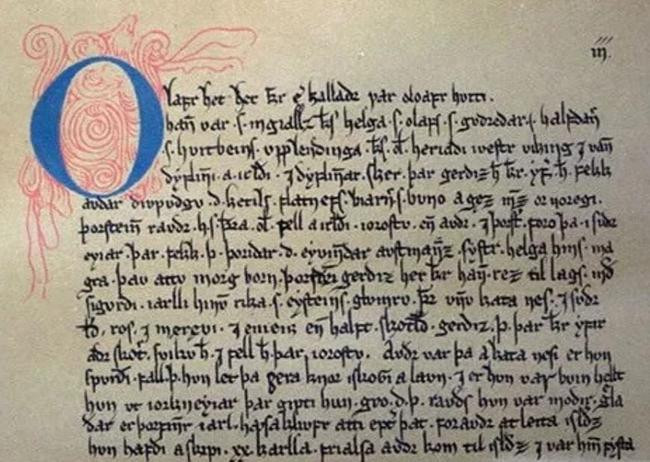 iij.
Olafr het h̅r k̅r e͛ kalladr var oloafr huiti.
han̅ var .s. ingiallz k̅s helga .s. olafs .s. gudredar .s. halfdan̅
.s. huitbeins upplendinga k̅s. ol. heriadi uestr uiking ⁊ van̅
dyflin̅i a irldi. ⁊ dyflin̅ar sker. þar gerdiz h̅ k̅r. yf̅. h̅. fekk
audar diupudgu .d. ketils. flatnefs. biarn̅s. buno agez m̅z or noregi.
þorstein̅ raudr. h̅s. þra. ol. fell a irldi. i orosto. en̅ audr. ⁊ þorst̅. foro þa i sudr
eyiar þar. fekk .þ. þoridar .d. eyuindar austman̅z. systr. helga hins ma
gra. þau attu morg born. þorsteinn gerdiz her k̅r han̅ rez til lags. m̅d
sigurdi. iarlli hinu̅ rika .s. eysteins. glumru. þr̅ vn̅u kata nes. ⁊ sudr
l̅d. ros. ⁊ merqui. ⁊ meirr en̅ halft. skotl̅d. gerdiz .þ. þar k̅r yfir
adr skot̅. suiku h̅. ⁊ fell h̅ þar i orostu. Audr var þa a kata nesi er hon
spurdi. fall .þ. hon let þa gera knor i skogi a laun. ⁊ er hon var buin helt
hon ut i orkneyiar þar gipti hun. gro .d. þ. rauds hon var modir. gla
dar er þorfin̅r iarl. hausakliufr atti ept̅ þat. for audr at leita islds
hun hafdi a skipi .xx. karlla. frialsa audr kom til islds ⁊ var hin̅ fysta